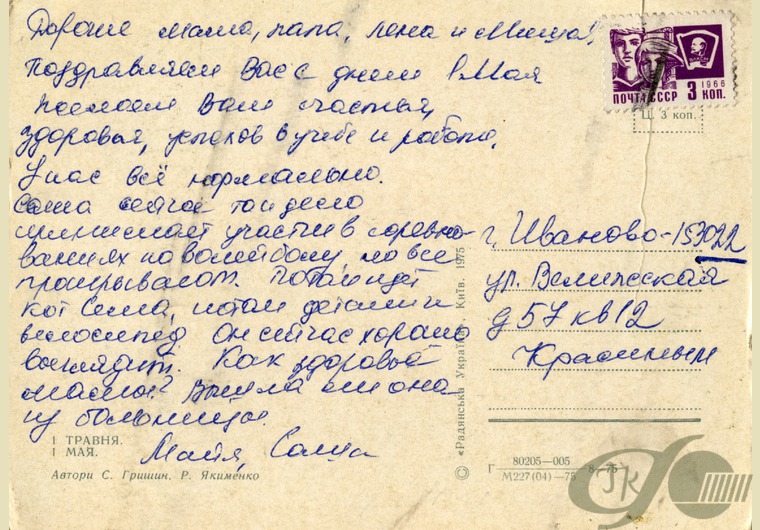 Дорогие мама, папа, Лена и Миша!
Поздравляем Вас с днем 1 Мая
Желаем Вам счастья,
здоровья, успехов в учебе и работе.
У нас всё нормально.
Саша сейчас то и дело
принимает участие в соревно-
ваниях по волейболу, но все
проигрывают. Потом идет
кот Сима, потом
велосипед. Он сейчас хорошо
выглядит. Как здоровье
мамы? Вышла ли она
из больницы.
Майя, Саша
ПОЧТА СССР 3 КОП. 1966
Ц. 3 коп.
г. Иваново-153022
ул. Велижская
д 57 кв 12
Красиным
1 ТРАВНЯ.
1 МАЯ.
Автори С. Гришин, Р. Якименко
© «Радянська Україна», Київ. 1975
Г 80205—005 8—75
М227(04)—75